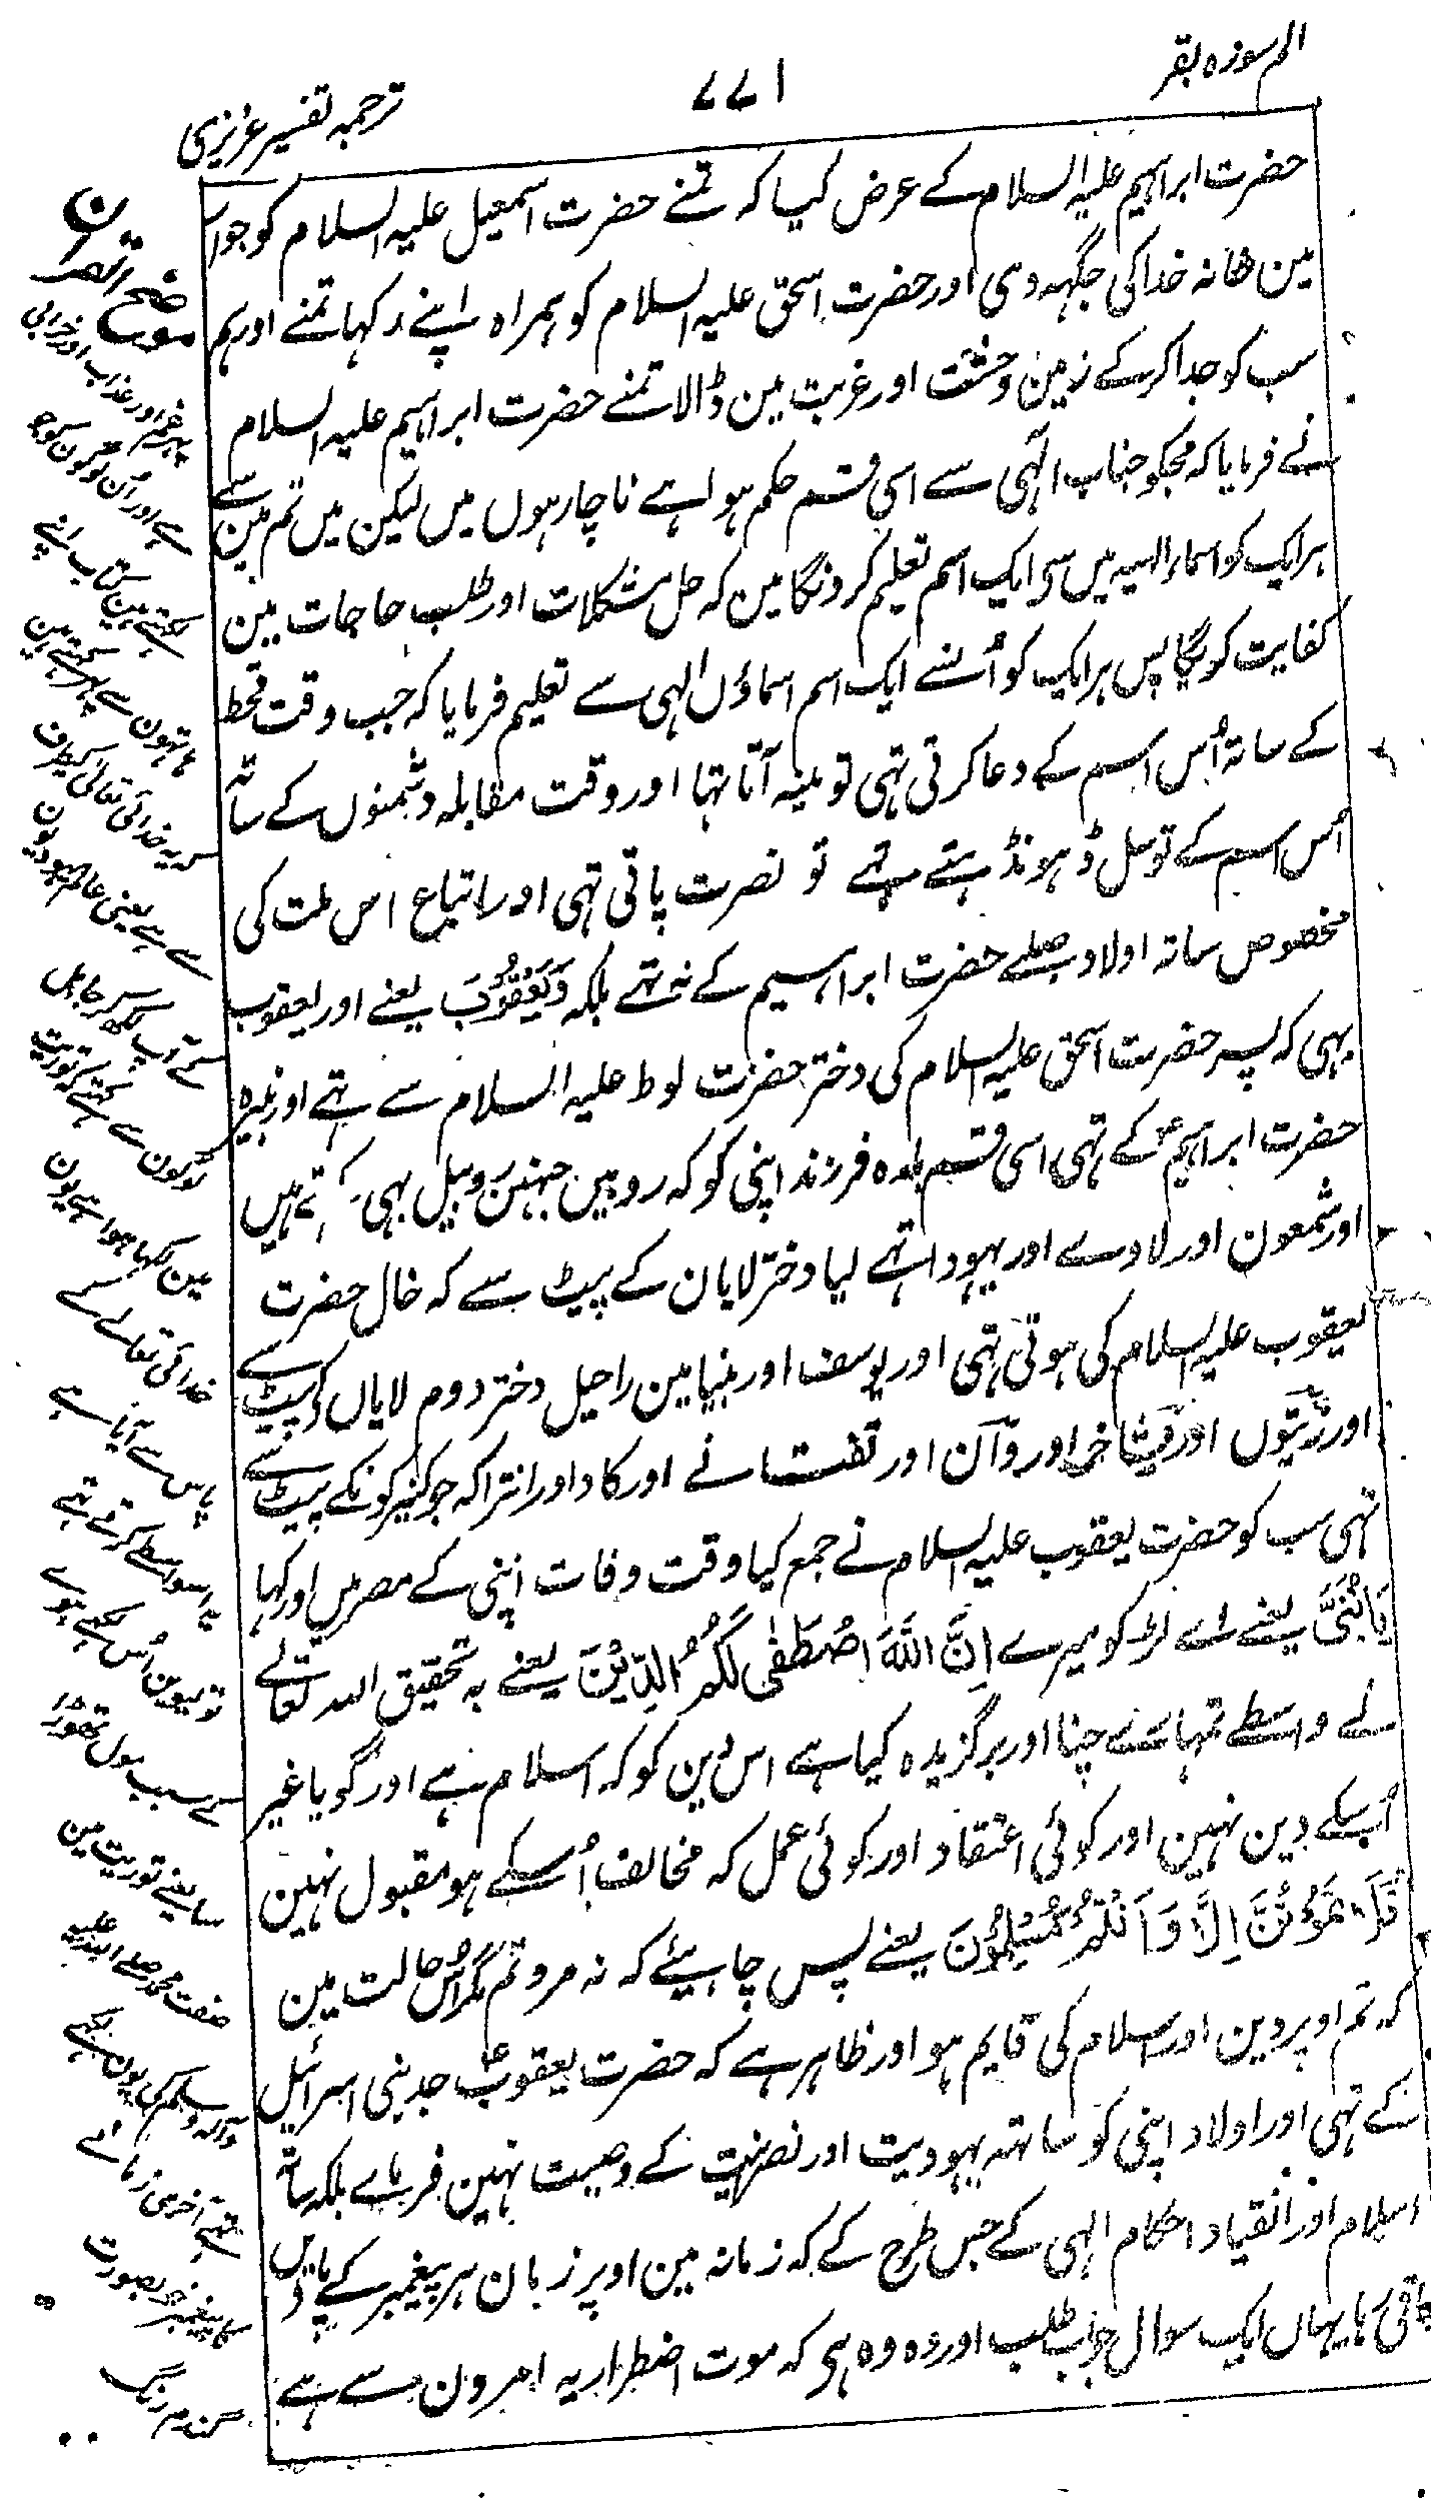 الم سورہ بقر
٧٧١
ترجمہ تفسیر عزیزی
حضرت ابراہیم علیہ السلام کے عرض کیا کہ تمنے حضرت اسمعیل علیہ السلام کو جوار
مین خانہ خدا کی جگہہ دی اور حضرت اسحق علیہ السلام کو ہمراہ اپنے رکہا تمنے اور ہم
سب کو جدا کر کے زمین وحشت اور غربت مین ڈالا تمنے حضرت ابراہیم علیہ السلام
نے فرمایا کہ مجکو جناب الٰہی سے اسی قسم حکم ہوا ہے ناچار ہوں میں لیکن میں تم مین سے
ہر ایک کو اسماء الہیہ میں سی ایک اسم تعلیم کرونگا مین کہ حل مشکلات اور طلب حاجات مین
کفایت کویگا پس ہر ایک کو اُسنے ایک اسم اسماؤں الہی سے تعلیم فرمایا کہ جب وقت قحط
کے ساتہ اُس اسم کے دعا کرتی تہی تو مینہ آتا تہا اور وقت مقابلہ دشمنوں کے ساتہ
اُس اسم کے توسل ڈہونڈہتے تہے تو نصرت پاتی تہی اور اتباع اس ملت کی
مخصوص ساتہ اولاد صلبے حضرت ابراہیم کے نہ تہے بلکہ وَيَعْقُوْبَ یعنے اور یعقوب
بہی کہ پسر حضرت اسحق علیہ السلام کی دختر حضرت لوط علیہ السلام سے تہے اور نبیرہ
حضرت ابراہیم ع کے تہی اسی قسم فرزند اپنی کو کہ روبین جنہیں روبیل بہی کہتے ہیں
اور شمعون اور لاوے اور یہودا تہے لیا دختر لایان کے پیٹ سے کہ خال حضرت
یعقوب علیہ السلام کی ہوتی تہی اور یوسف اور بنیامین راحیل دختر دوم لایاں کی پیٹ سے
اور اور اور اور کاد اور کہ جو کنیزکونکے پیٹ سے
تہی سب کو حضرت یعقوب علیہ السلام نے جمع کیا وقت وفات اپنی کے مصر میں اور کہا
يَا بُنَيَّ یعنے اے لڑکو میرے اِنَّ اللّٰهَ اصْطَفٰى لَكُمُ الدِّيْنَ یعنے بہ تحقیق اللہ تعالے
نے واسطے تمہارے چنا اور برگزیدہ کیا ہے اس دین کو کہ اسلام ہے اور گویا غیر
اُسکے دین نہین اور کوئی اعتقاد اور کوئی عمل کہ مخالف اُسکے ہو مقبول نہین
فَلَا تَمُوْتُنَّ اِلَّا وَاَنْتُمْ مُسْلِمُوْنَ یعنے پس چاہیئے کہ نہ مرو تم مگر اُس حالت مین
کہ تم اوپر دین اور اسلام کی قایم ہو اور ظاہر ہے کہ حضرت یعقوب ع جد بنی اسرائیل
کے تہی اور اولاد اپنی کو ساتہہ یہودیت اور نصرنیت کے وصیت نہین فرماے بلکہ ساتہ
اسلام اور انقیاد احکام الہی کے جس طرح کے کہ زمانہ مین اوپر زبان ہر پیغمبر کے پاویں
باقی رہا یہاں ایک سوال جواب طلب اور وہ وہ ہی کہ موت اضطراریہ امرون مسے ہے
موضح القران
پہر خمر اور عذاب اور خرابی
ہے اون لوگون کو جو
لکہتے ہین کتاب اپنے
ہاتہون سے پہر کہتے ہین
کہ یہ خدائی تعالی کیطرف
سے ہے یعنی عالم یہودیون
کے آپ لکہکر جاہل
لوگون سے کہتے کہ توریت
مین لکہا ہوا ہے یون
خدائی تعالے کے
پاس سے آیا ہے
یہ اسواسطے کرتے تہے
تو اُس لکہے ہوے
کے سبب مول تہوڑا
سا یعنے توریت مین
صفت محمد صلے اللہ علیہ
وآلہ وسلم کی یون لکہے
تہے آخری زمانے
کا پیغمبر خوبصورت
گندم رنگ